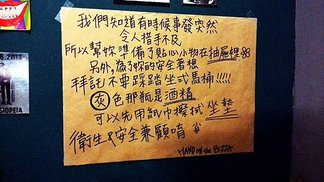 我們知道有時候事發突然
令人措手不及
所以幫妳準備了貼心小物在抽屜裡
另外,為了妳的安全著想
拜託不要踩踏坐式馬桶!!!!!
灰色那瓶是酒精
可以先用紙巾擦拭坐墊
衛生&安全兼顧唷
HAPPY